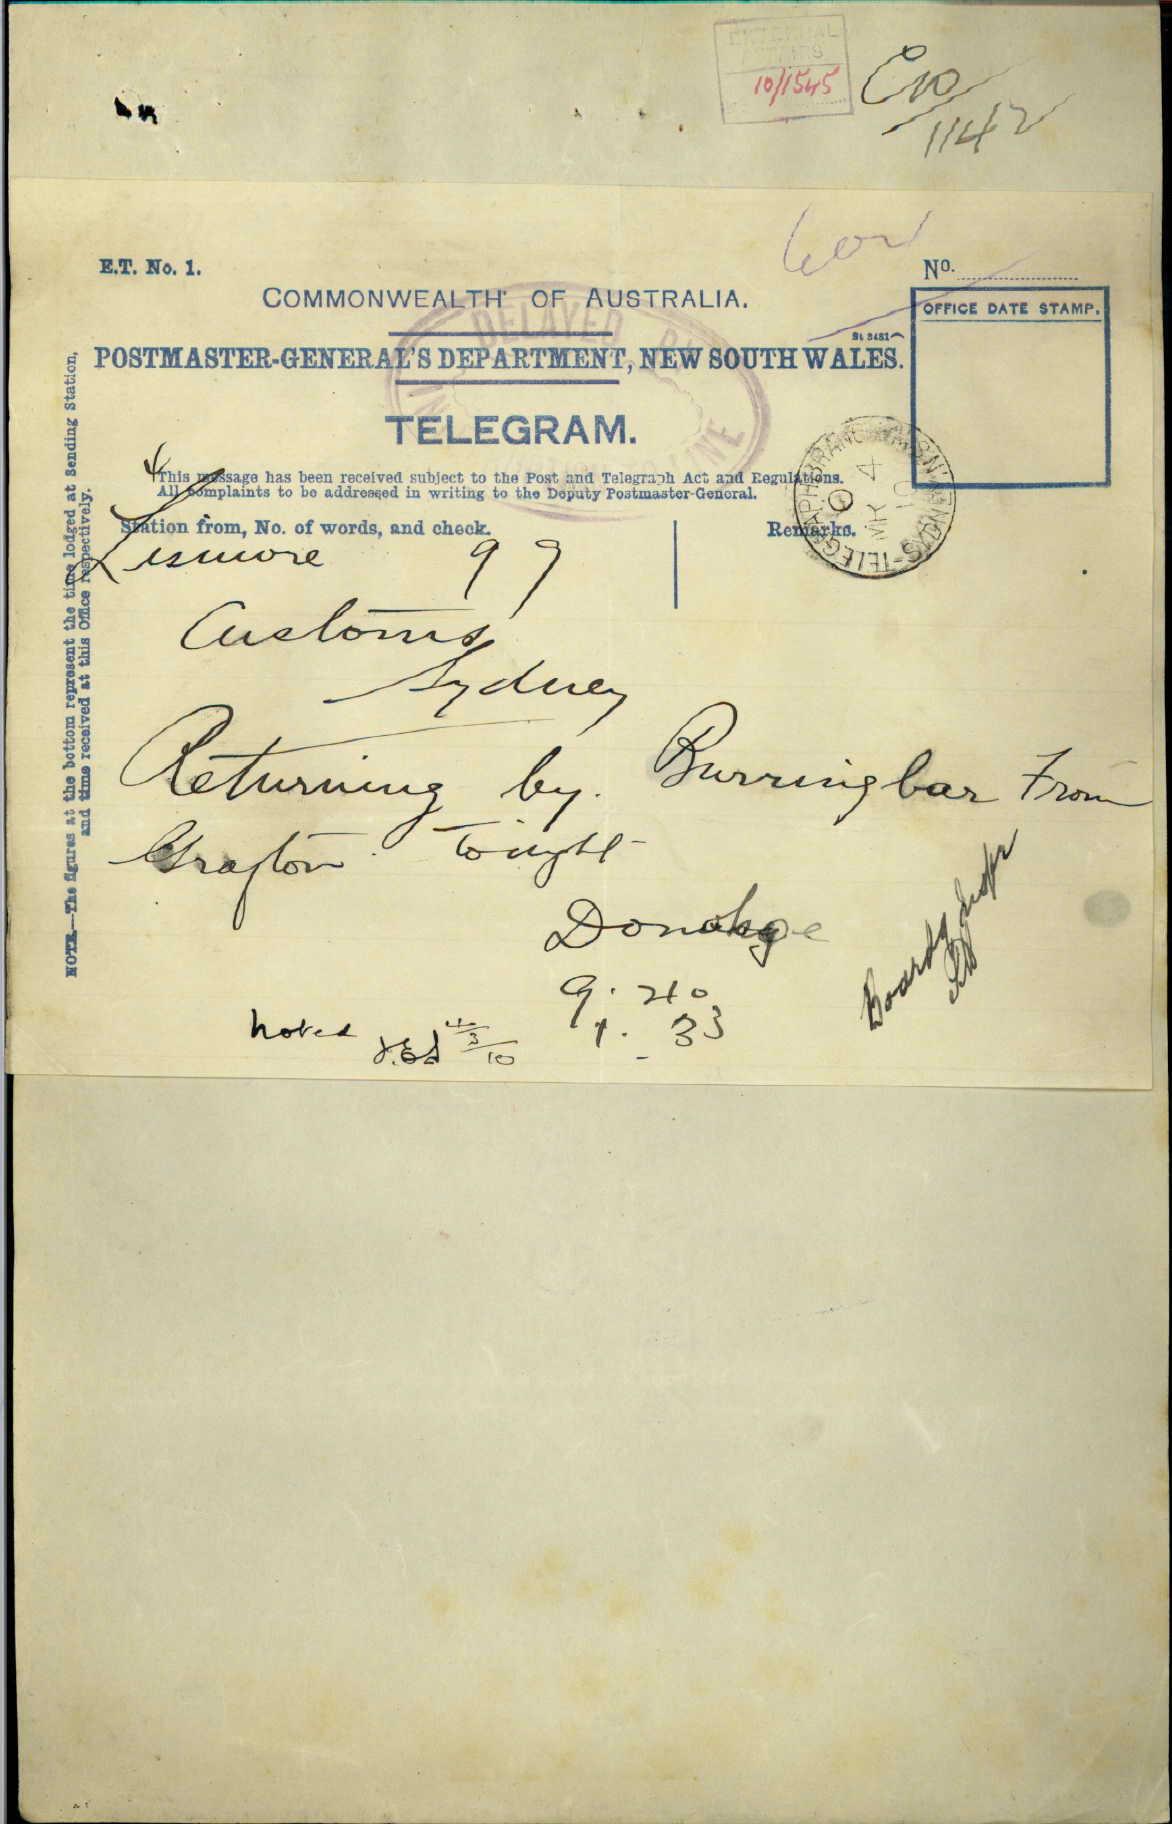 EXTERNAL
AFFAIRS
10/1545
1142
E.T. No. 1.
No.
COMMONWEALTH OF AUSTRALIA.
OFFICE DATE STAMP.
St 3451
POSTMASTER-GENERAL'S DEPARTMENT, NEW SOUTH WALES.
DELAYED
LINE
TELEGRAM.
This message has been received subject to the Post and Telegraph Act and Regulations.
All complaints to be addressed in writing to the Deputy Postmaster-General.
Station from, No. of words, and check.
Remarks.
TELEGRAPH BRANCH SYDNEY N.S.W
MR 4
10
Lismore 9 9
Customs
Sydney
Returning by. Burringbar From
Grafton Tonight
Donohoe
9. 40
1. 33
Noted
4/3/10
NOTE.—The figures at the bottom represent the time lodged at Sending Station,
and time received at this Office respectively.